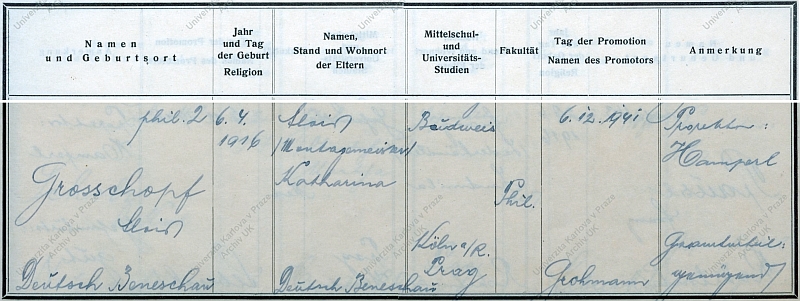 Namen
und Geburtsort
Jahr
und Tag
der Geburt
Religion
Namen,
Stand und Wohnort
der Eltern
Mittelschul-
und
Universitäts-
Studien
Fakultät
Tag der Promotion
Namen des Promotors
Anmerkung
phil. 2
Grosschopf
Alois
Deutsch Beneschau
6. 4.
1916
Alois
(Montagemeister)
Katharina
Deutsch Beneschau
Budweis
Köln a/R.
Prag
Phil.
6. 12. 1941
Grohmann
Prorektor:
Hamperl
Gesamturteil:
genügend